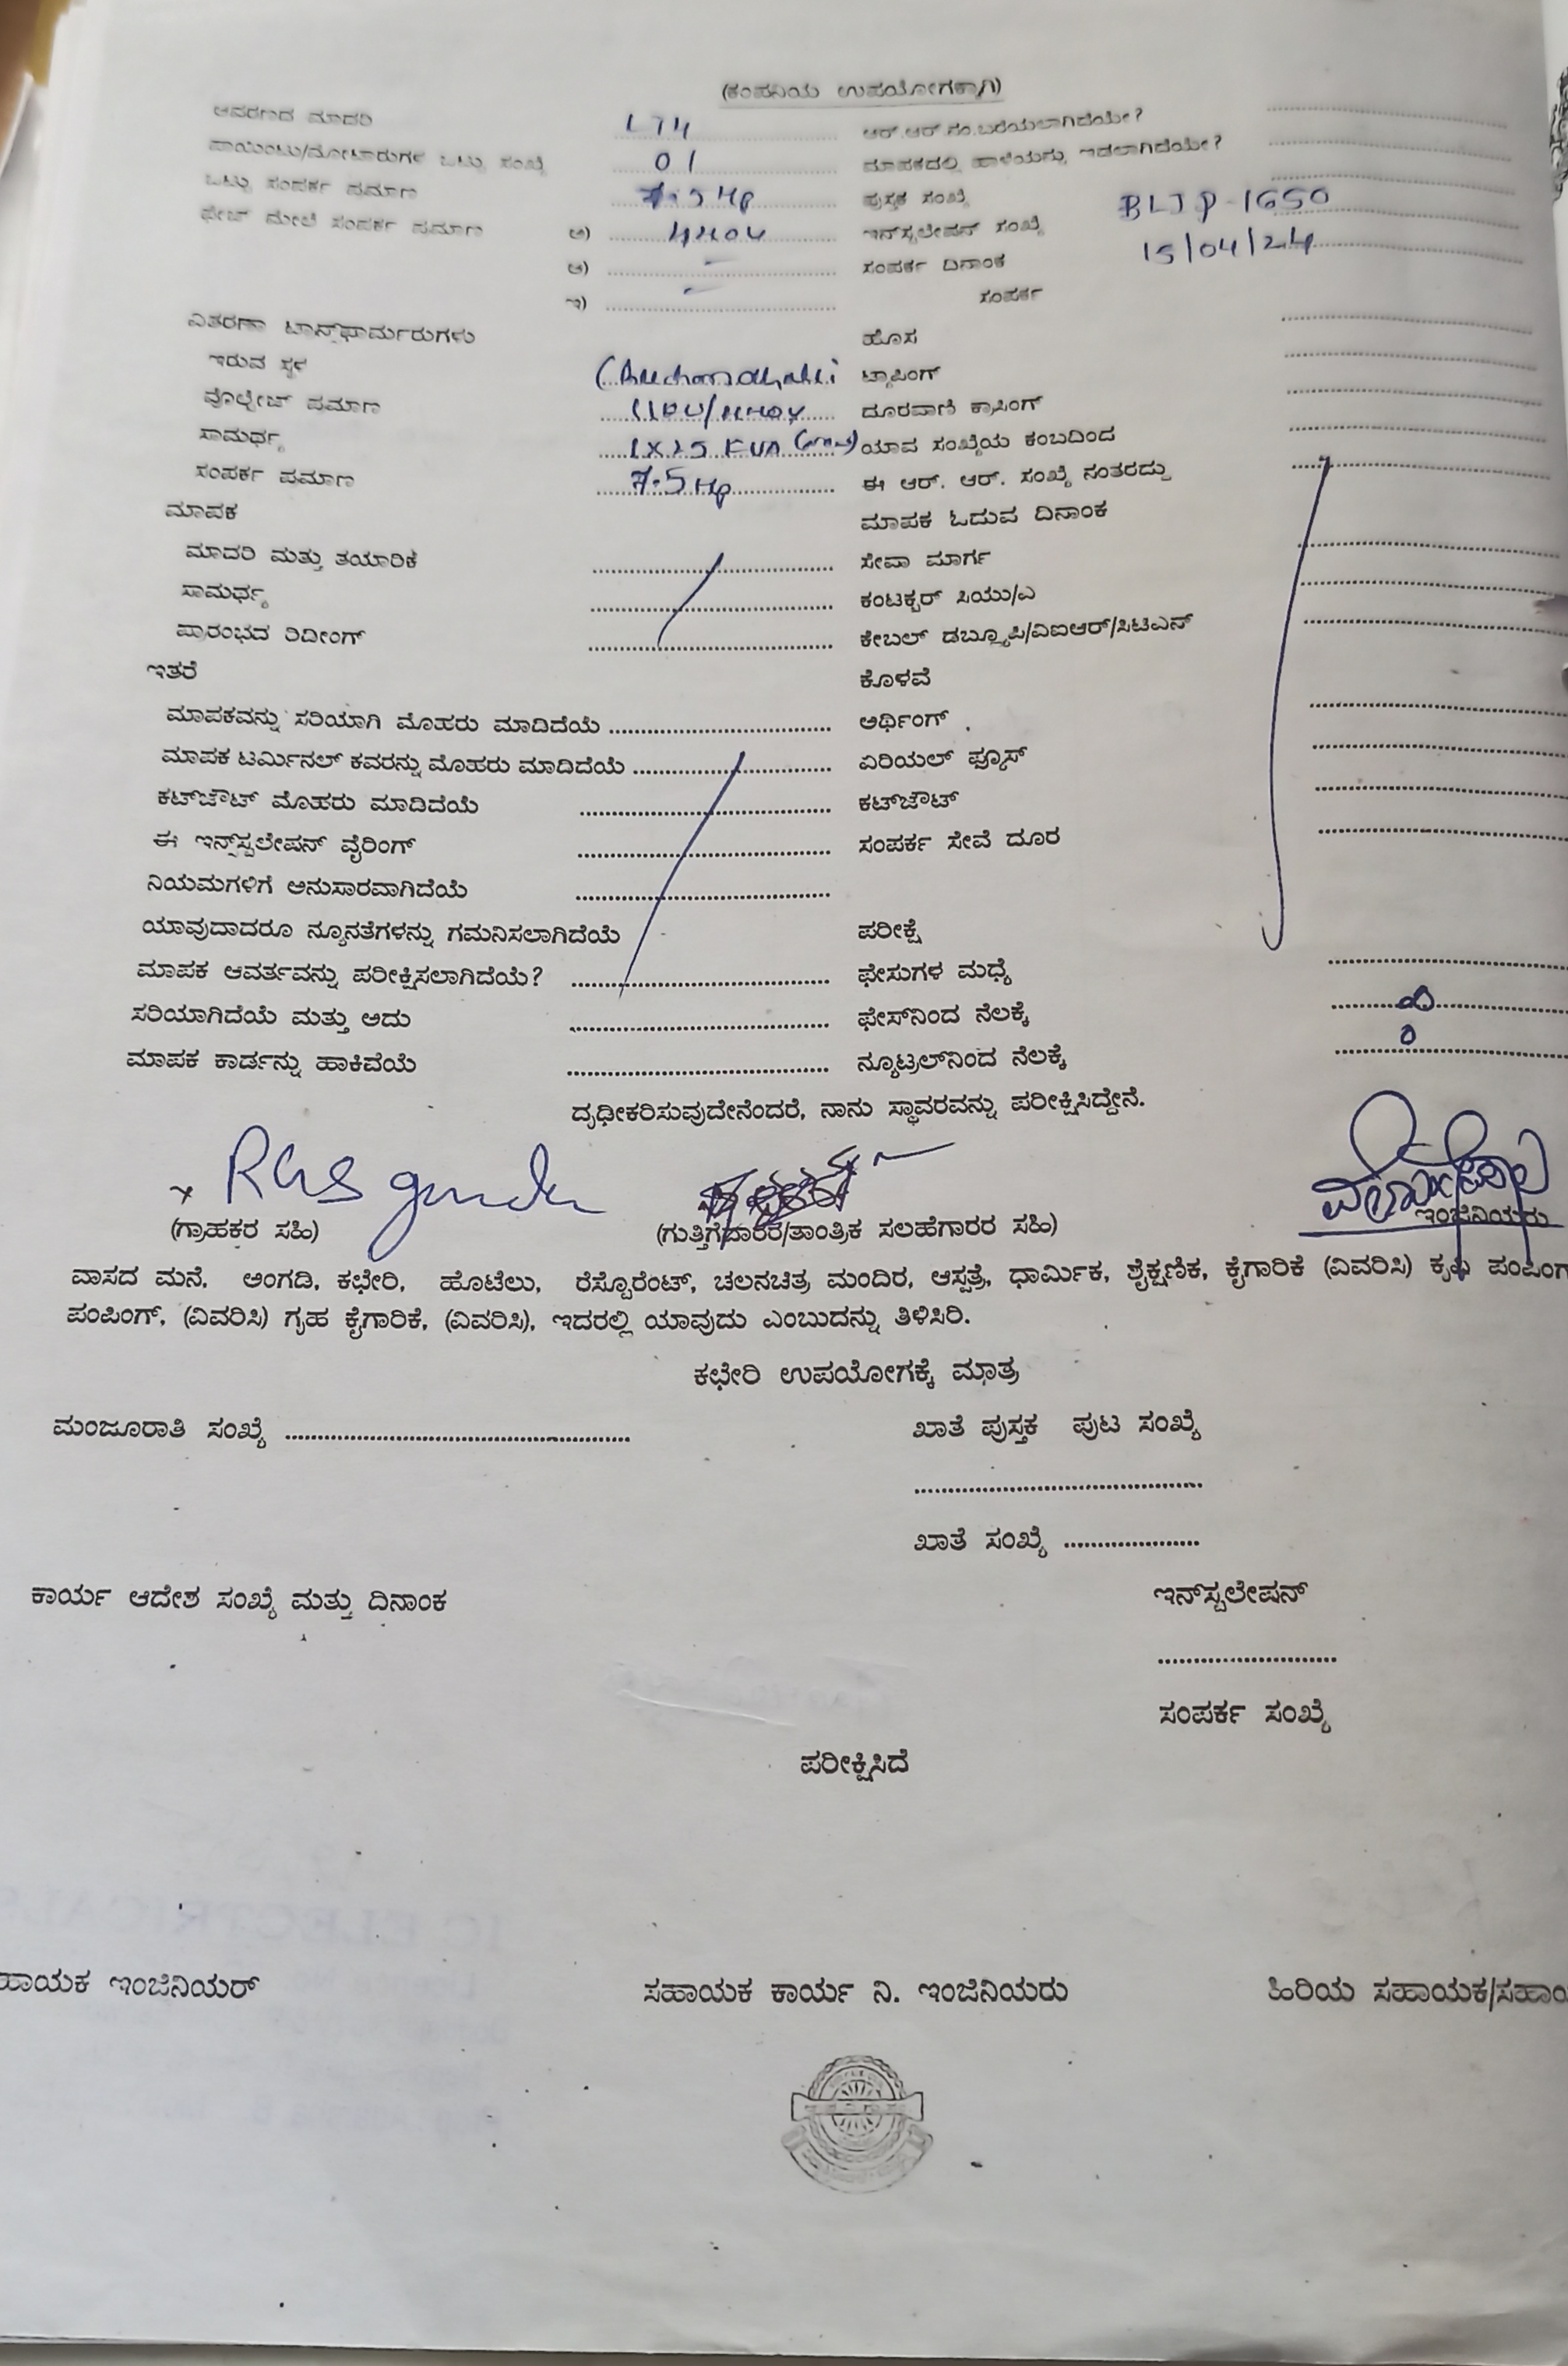 (ಕಂಪನಿಯ ಉಪಯೋಗಕ್ಕಾಗಿ)
ಆವರಣದ ಮಾದರಿ LT4 ಆರ್.ಆರ್.ನಂ.ಬರೆಯಲಾಗಿದೆಯೇ?
ಪಾಯಿಂಟು/ಮೋಟಾರುಗಳ ಒಟ್ಟು ಸಂಖ್ಯೆ 01 ಮಾಪಕದಲ್ಲಿ ಹಾಳೆಯನ್ನು ಇಡಲಾಗಿದೆಯೇ?
ಒಟ್ಟು ಸಂಪರ್ಕ ಪ್ರಮಾಣ 7.5 Hp ಪುಸ್ತಕ ಸಂಖ್ಯೆ
ಫೇಜ್ ಮೇಲೆ ಸಂಪರ್ಕ ಪ್ರಮಾಣ ಅ) 440V ಇನ್‌ಸ್ಟಲೇಷನ್ ಸಂಖ್ಯೆ BLJP-1650
ಆ) – ಸಂಪರ್ಕ ದಿನಾಂಕ 15/04/24
ಇ) – ಸಂಪರ್ಕ
ವಿತರಣಾ ಟ್ರಾನ್ಸ್‌ಫಾರ್ಮರುಗಳು ಹೊಸ
ಇರುವ ಸ್ಥಳ ಟ್ಯಾಪಿಂಗ್
ವೊಲ್ಟೇಜ್ ಪ್ರಮಾಣ ದೂರವಾಣಿ ಕ್ರಾಸಿಂಗ್
ಸಾಮರ್ಥ್ಯ 1X25 KVA ಯಾವ ಸಂಖ್ಯೆಯ ಕಂಬದಿಂದ
ಸಂಪರ್ಕ ಪ್ರಮಾಣ 7.5 Hp ಈ ಆರ್. ಆರ್. ಸಂಖ್ಯೆ ನಂತರದ್ದು
ಮಾಪಕ ಮಾಪಕ ಓದುವ ದಿನಾಂಕ
ಮಾದರಿ ಮತ್ತು ತಯಾರಿಕೆ ಸೇವಾ ಮಾರ್ಗ
ಸಾಮರ್ಥ್ಯ ಕಂಟಕ್ಟರ್ ಸಿಯು/ಎ
ಪ್ರಾರಂಭದ ರಿದೀಂಗ್ ಕೇಬಲ್ ಡಬ್ಲ್ಯೂಪಿ/ವಿಐಆರ್/ಸಿಟಿಎಸ್
ಇತರೆ ಕೊಳವೆ
ಮಾಪಕವನ್ನು ಸರಿಯಾಗಿ ಮೊಹರು ಮಾಡಿದೆಯೆ ಅರ್ಥಿಂಗ್
ಮಾಪಕ ಟರ್ಮಿನಲ್ ಕವರನ್ನು ಮೊಹರು ಮಾಡಿದೆಯೆ ಏರಿಯಲ್ ಫ್ಯೂಸ್
ಕಟ್‌ಔಟ್ ಮೊಹರು ಮಾಡಿದೆಯೆ ಕಟ್‌ಔಟ್
ಈ ಇನ್ಸ್‌ಸ್ಟಲೇಷನ್ ವೈರಿಂಗ್ ಸಂಪರ್ಕ ಸೇವೆ ದೂರ
ನಿಯಮಗಳಿಗೆ ಅನುಸಾರವಾಗಿದೆಯೆ
ಯಾವುದಾದರೂ ನ್ಯೂನತೆಗಳನ್ನು ಗಮನಿಸಲಾಗಿದೆಯೆ ಪರೀಕ್ಷೆ
ಮಾಪಕ ಆವರ್ತವನ್ನು ಪರೀಕ್ಷಿಸಲಾಗಿದೆಯೆ? ಫೇಸುಗಳ ಮಧ್ಯೆ
ಸರಿಯಾಗಿದೆಯೆ ಮತ್ತು ಅದು ಫೇಸ್‌ನಿಂದ ನೆಲಕ್ಕೆ ∞
ಮಾಪಕ ಕಾರ್ಡನ್ನು ಹಾಕಿವೆಯೆ ನ್ಯೂಟ್ರಲ್‌ನಿಂದ ನೆಲಕ್ಕೆ 0
ದೃಢೀಕರಿಸುವುದೇನೆಂದರೆ, ನಾನು ಸ್ಥಾವರವನ್ನು ಪರೀಕ್ಷಿಸಿದ್ದೇನೆ.
(ಗ್ರಾಹಕರ ಸಹಿ) (ಗುತ್ತಿಗೆದಾರರ/ತಾಂತ್ರಿಕ ಸಲಹೆಗಾರರ ಸಹಿ) ಇಂಜಿನಿಯರು
ವಾಸದ ಮನೆ. ಅಂಗಡಿ, ಕಛೇರಿ, ಹೊಟೆಲು, ರೆಸ್ಟೊರೆಂಟ್, ಚಲನಚಿತ್ರ ಮಂದಿರ, ಆಸ್ಪತ್ರೆ, ಧಾರ್ಮಿಕ, ಶೈಕ್ಷಣಿಕ, ಕೈಗಾರಿಕೆ (ವಿವರಿಸಿ) ಕೃಷಿ ಪಂಪಿಂಗ್
ಪಂಪಿಂಗ್, (ವಿವರಿಸಿ) ಗೃಹ ಕೈಗಾರಿಕೆ, (ವಿವರಿಸಿ), ಇದರಲ್ಲಿ ಯಾವುದು ಎಂಬುದನ್ನು ತಿಳಿಸಿರಿ.
ಕಛೇರಿ ಉಪಯೋಗಕ್ಕೆ ಮಾತ್ರ
ಮಂಜೂರಾತಿ ಸಂಖ್ಯೆ ಖಾತೆ ಪುಸ್ತಕ ಪುಟ ಸಂಖ್ಯೆ
ಖಾತೆ ಸಂಖ್ಯೆ
ಕಾರ್ಯ ಆದೇಶ ಸಂಖ್ಯೆ ಮತ್ತು ದಿನಾಂಕ ಇನ್‌ಸ್ಟಲೇಷನ್
ಸಂಪರ್ಕ ಸಂಖ್ಯೆ
ಪರೀಕ್ಷಿಸಿದೆ
ಹಾಯಕ ಇಂಜಿನಿಯರ್ ಸಹಾಯಕ ಕಾರ್ಯ ನಿ. ಇಂಜಿನಿಯರು ಹಿರಿಯ ಸಹಾಯಕ/ಸಹಾಯ